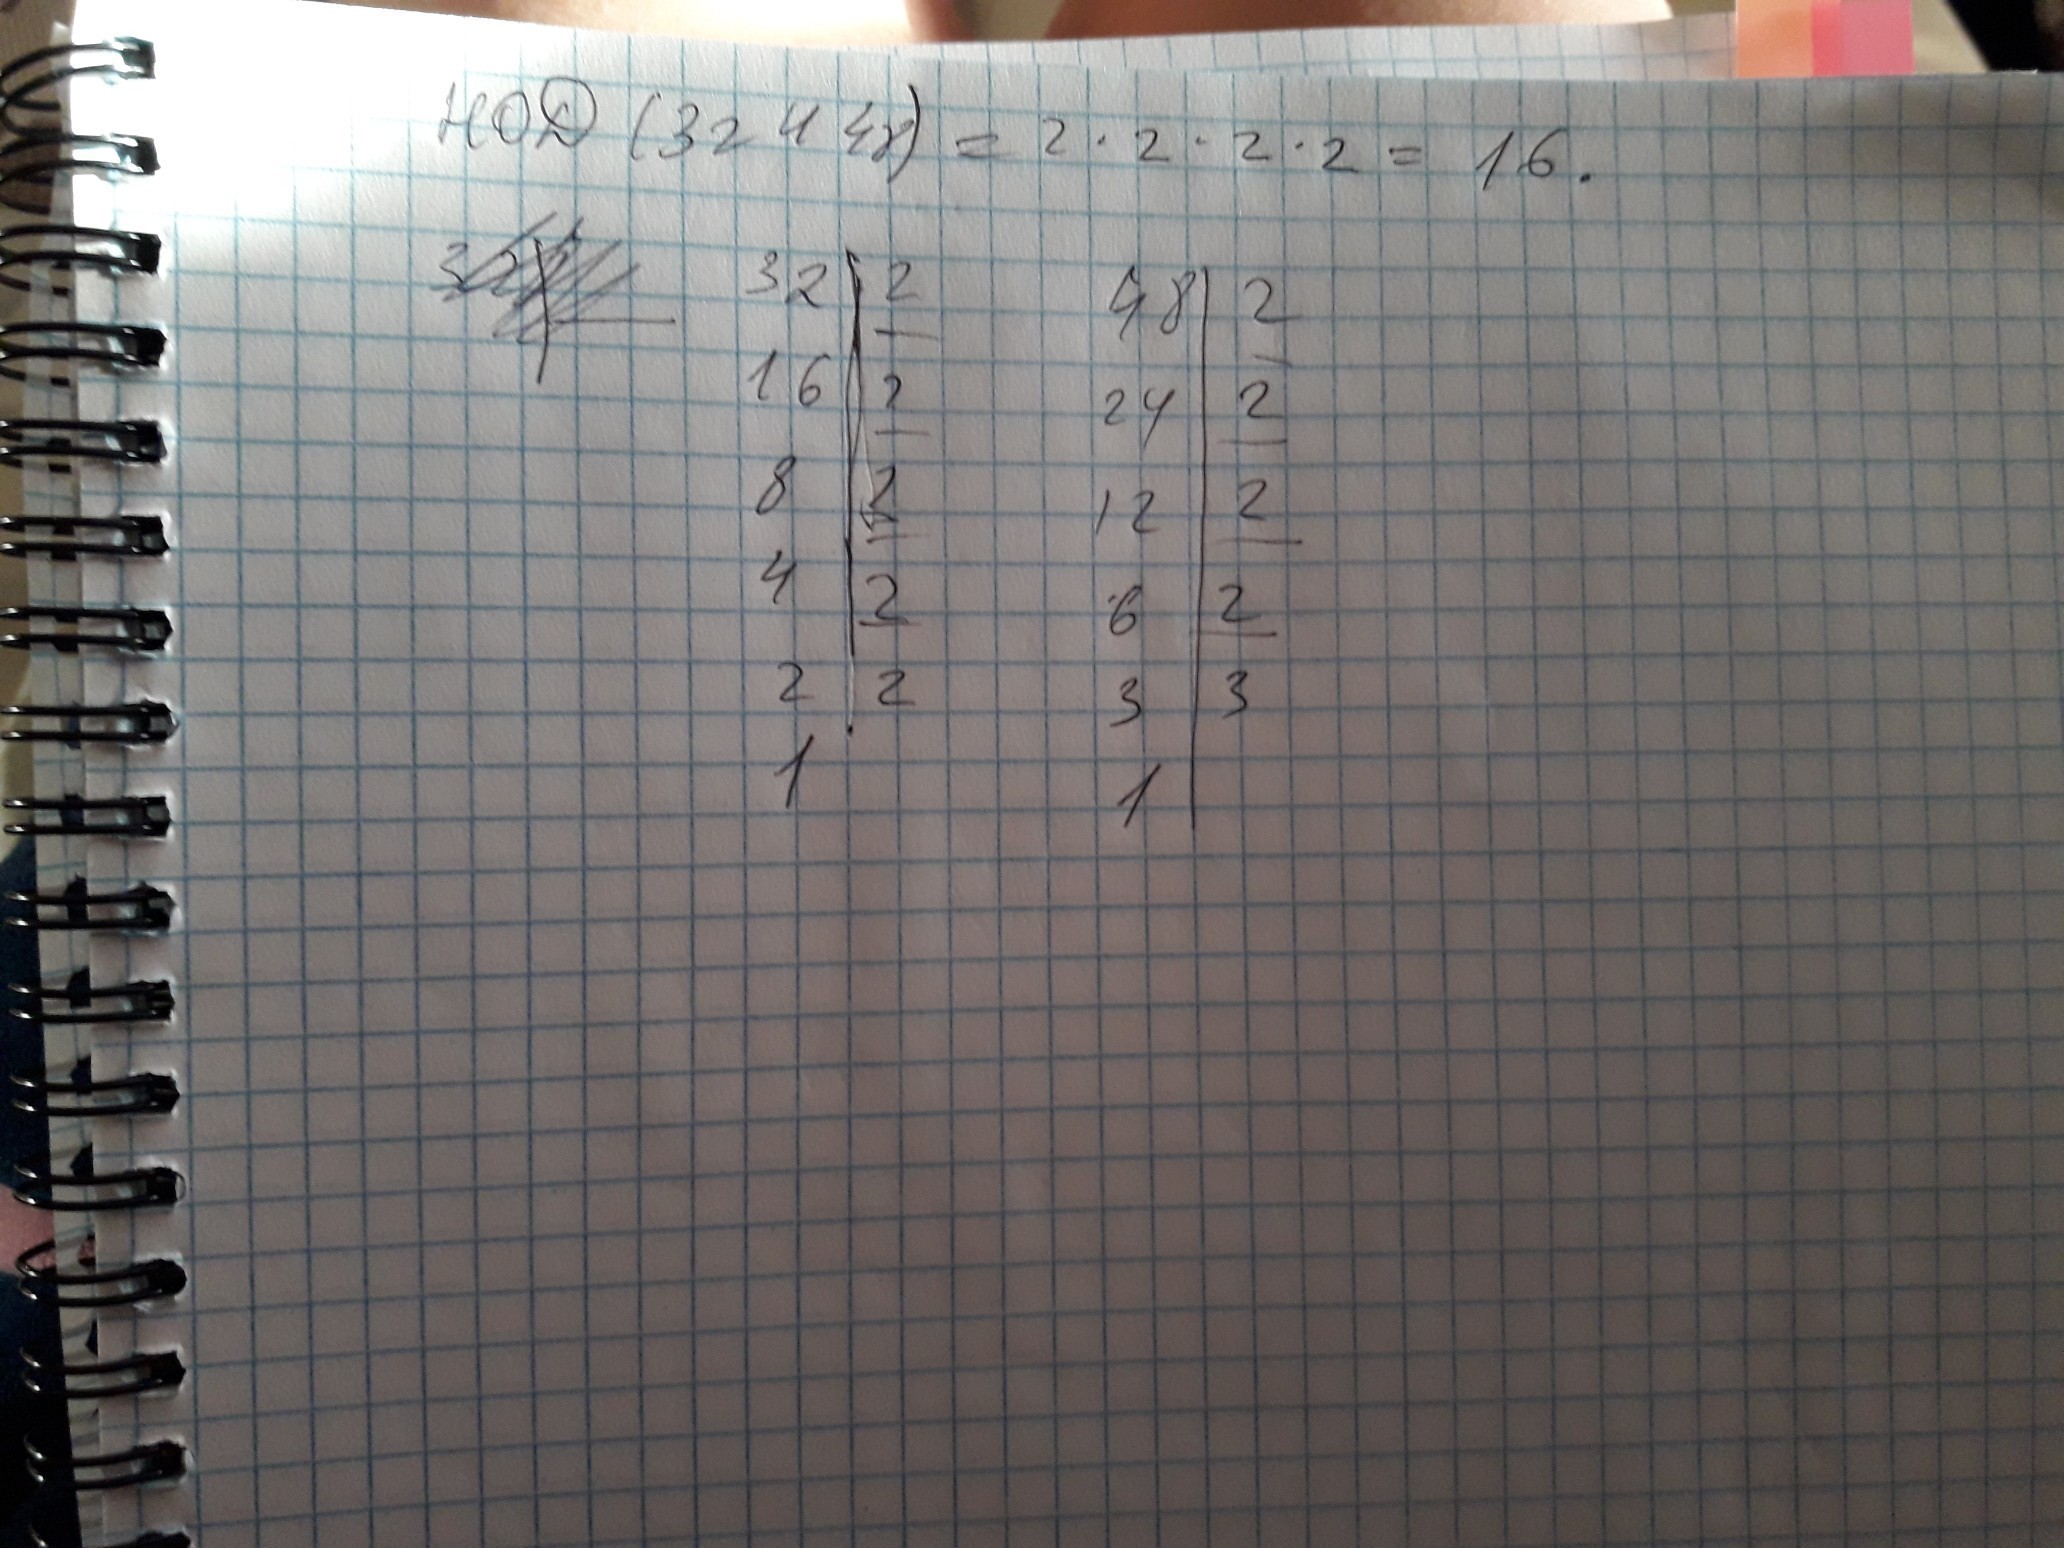 НОД (32 и 48) = 2 · 2 · 2 · 2 = 16.
32 | 2 48 | 2
16 | 2 24 | 2
8 | 2 12 | 2
4 | 2 6 | 2
2 | 2 3 | 3
1 1 |